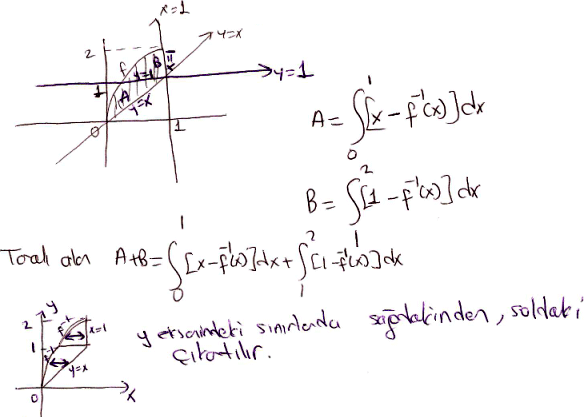 x=1
y=x
2
f
B
y=1
y=1
1
A
y=x
0
1
A = ∫₀¹ [x - f⁻¹(x)] dx
B = ∫₁² [1 - f⁻¹(x)] dx
alan A+B = ∫₀¹ [x - f⁻¹(x)] dx + ∫₁² [1 - f⁻¹(x)] dx
y
2
x=1
1
y=x
0
x
y eksenindeki sınırlarda sağdakinden, soldaki
çıkartılır.